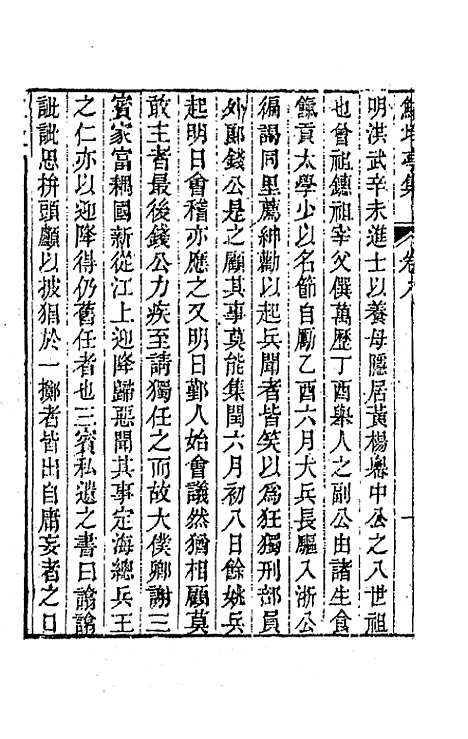 鮚埼亭集 卷九 一
明洪武辛未進士以養母隱居黃楊嶴中公之八世祖
也曾祖鐩祖宰父僎萬歷丁酉舉人之副公由諸生食
餼貢太學少以名節自勵乙酉六月大兵長驅入浙公
徧謁同里薦紳勸以起兵聞者皆笑以為狂獨刑部員
外郞錢公是之顧其事莫能集閏六月初八日餘姚兵
起明日會稽亦應之又明日鄞人始會議然猶相顧莫
敢主者最後錢公力疾至請獨任之而故太僕卿謝三
賓家富耦國新從江上迎降歸惡聞其事定海總兵王
之仁亦以迎降得仍舊任者也三賓私遺之書曰潝潝
訿訿思拚頭顱以披猖於一擲者皆出自庸妄者之口